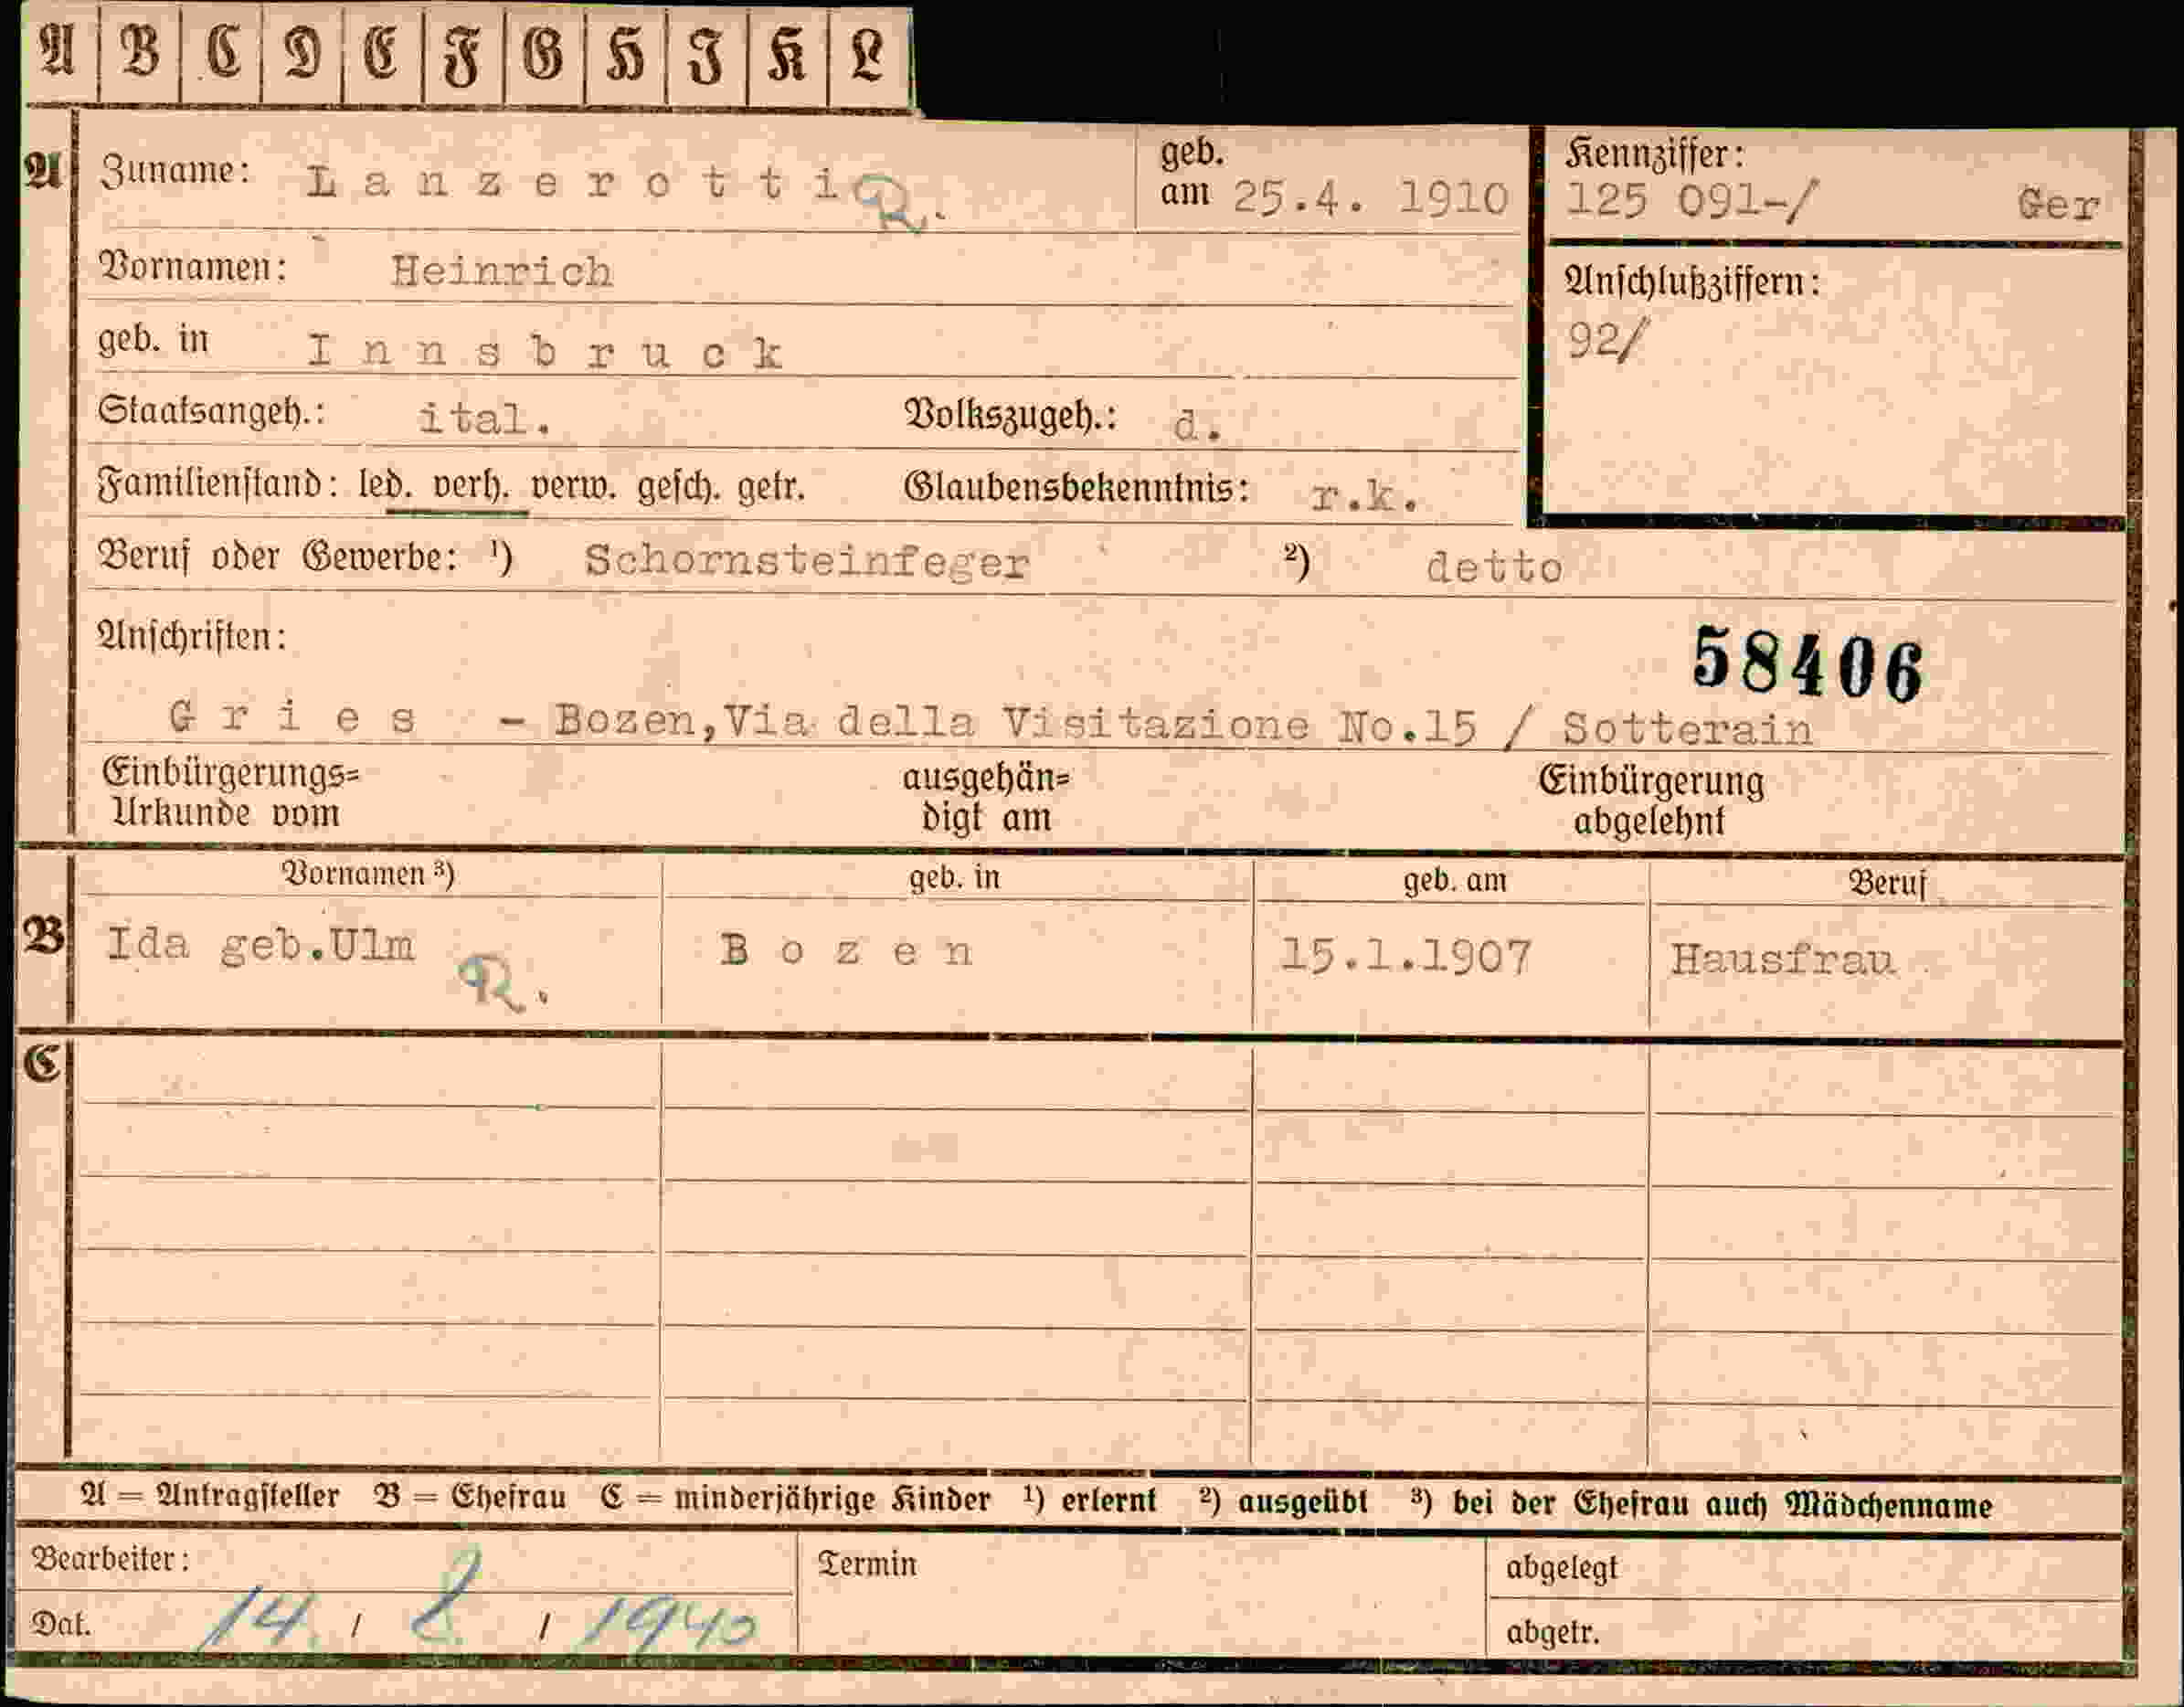 A B C D E F G H I K L
A Zuname: Lanzerotti R. geb. am 25.4. 1910 Kennziffer: 125 091-/ Ger
Vornamen: Heinrich Anschlußziffern:
geb. in Innsbruck 92/
Staatsangeh.: ital. Volkszugeh.: d.
Familienstand: led. verh. verw. gesch. getr. Glaubensbekenntnis: r.k.
Beruf oder Gewerbe: ¹) Schornsteinfeger ²) detto
Anschriften: 58406
Gries - Bozen,Via della Visitazione No.15 / Sotterain
Einbürgerungs= ausgehän= Einbürgerung
Urkunde vom digt am abgelehnt
Vornamen ³) geb. in geb. am Beruf
B Ida geb.Ulm R. Bozen 15.1.1907 Hausfrau
C
A = Antragsteller B = Ehefrau C = minderjährige Kinder ¹) erlernt ²) ausgeübt ³) bei der Ehefrau auch Mädchenname
Bearbeiter: Termin abgelegt
Dat. 14. / 8. / 1940 abgetr.